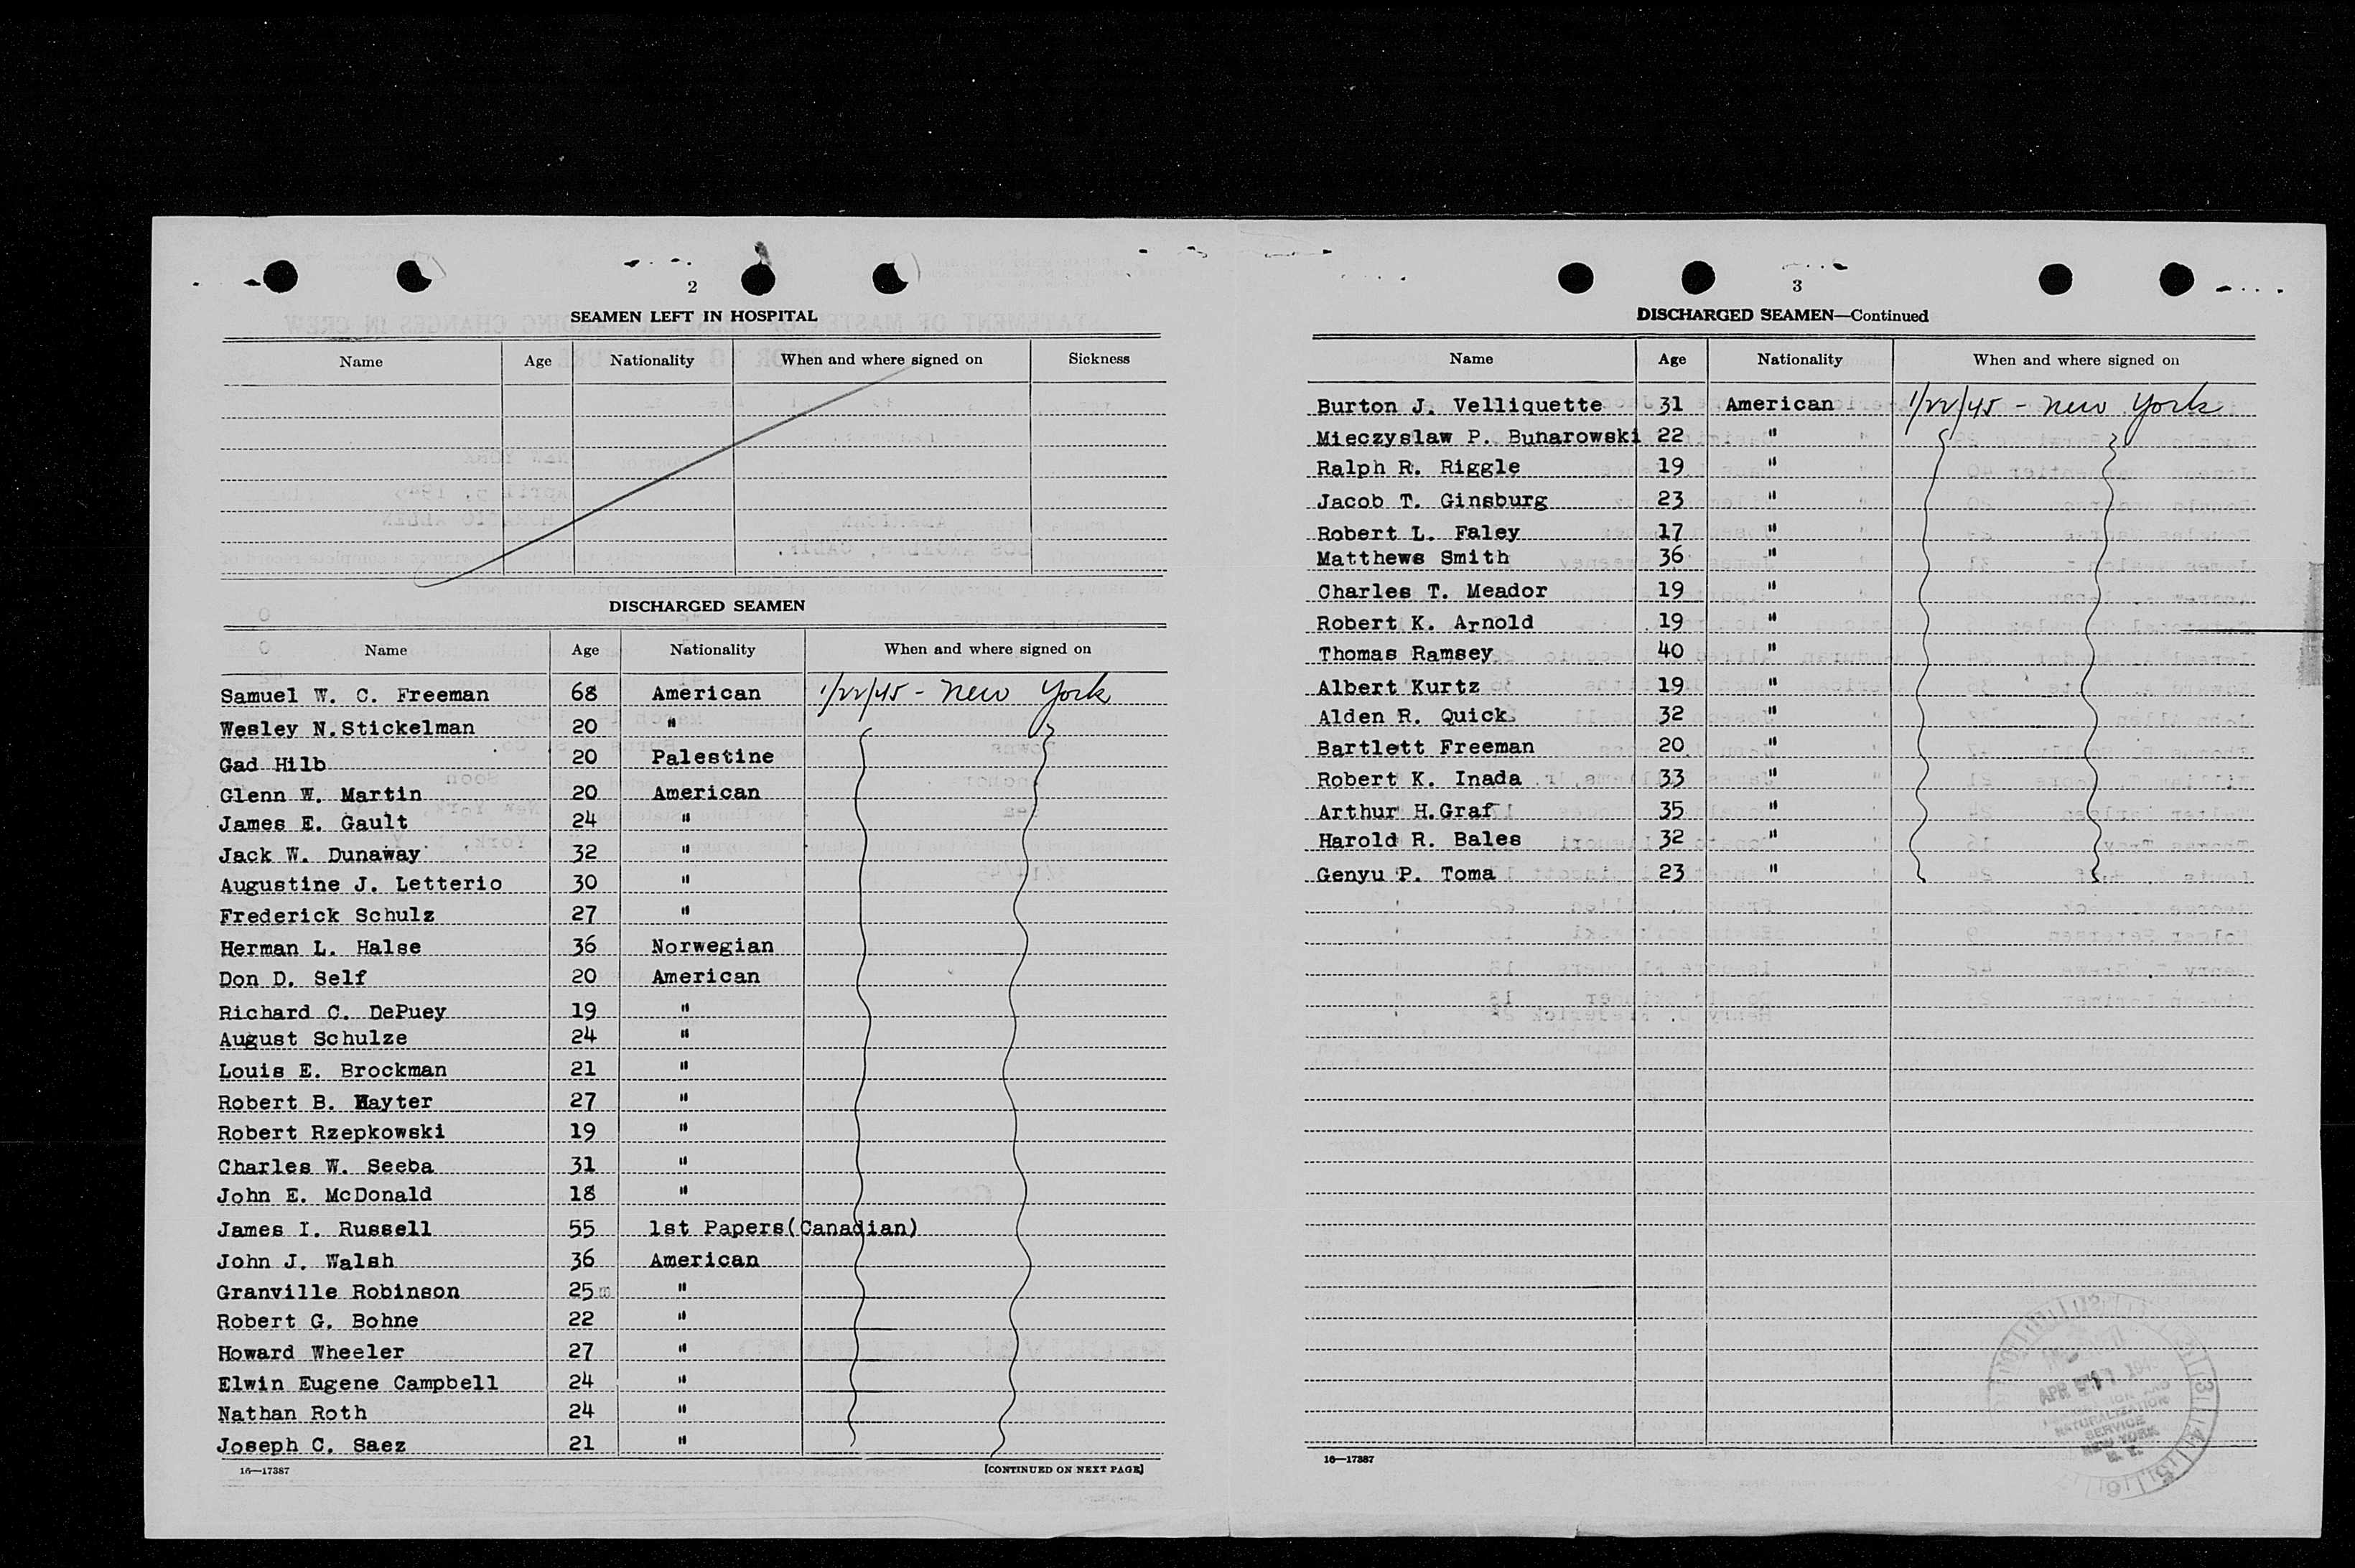 2
SEAMEN LEFT IN HOSPITAL
Name Age Nationality When and where signed on Sickness
DISCHARGED SEAMEN
Name Age Nationality When and where signed on
Samuel W. C. Freeman 68 American 1/22/45 - New York
Wesley N.Stickelman 20 "
Gad Hilb 20 Palestine
Glenn W. Martin 20 American
James E. Gault 24 "
Jack W. Dunaway 32 "
Augustine J. Letterio 30 "
Frederick Schulz 27 "
Herman L. Halse 36 Norwegian
Don D. Self 20 American
Richard C. DePuey 19 "
August Schulze 24 "
Louis E. Brockman 21 "
Robert B. Hayter 27 "
Robert Rzepkowski 19 "
Charles W. Seeba 31 "
John E. McDonald 18 "
James I. Russell 55 1st Papers(Canadian)
John J. Walsh 36 American
Granville Robinson 25 "
Robert G. Bohne 22 "
Howard Wheeler 27 "
Elwin Eugene Campbell 24 "
Nathan Roth 24 "
Joseph C. Saez 21 "
16—17387 [CONTINUED ON NEXT PAGE]
3
DISCHARGED SEAMEN—Continued
Name Age Nationality When and where signed on
Burton J. Velliquette 31 American 1/22/45 - New York
Mieczyslaw P. Bunarowski 22 "
Ralph R. Riggle 19 "
Jacob T. Ginsburg 23 "
Robert L. Faley 17 "
Matthews Smith 36 "
Charles T. Meador 19 "
Robert K. Arnold 19 "
Thomas Ramsey 40 "
Albert Kurtz 19 "
Alden R. Quick 32 "
Bartlett Freeman 20 "
Robert K. Inada 33 "
Arthur H.Graf 35 "
Harold R. Bales 32 "
Genyu P. Toma 23 "
APR
NATURALIZATION
SERVICE
NEW YORK
N. Y.
16—17387